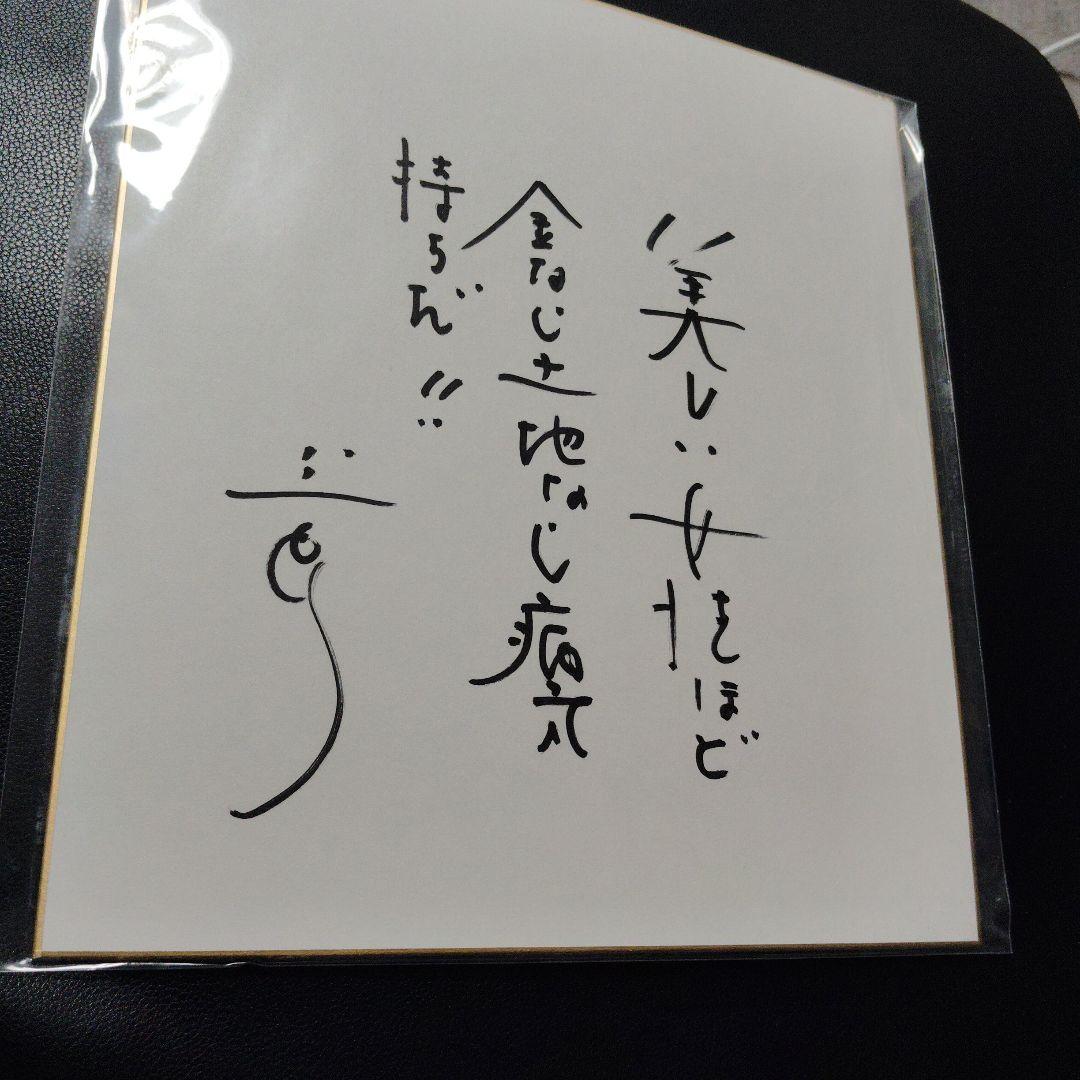 美しい女性ほど
金なし土地なし病気
持ちだ!!